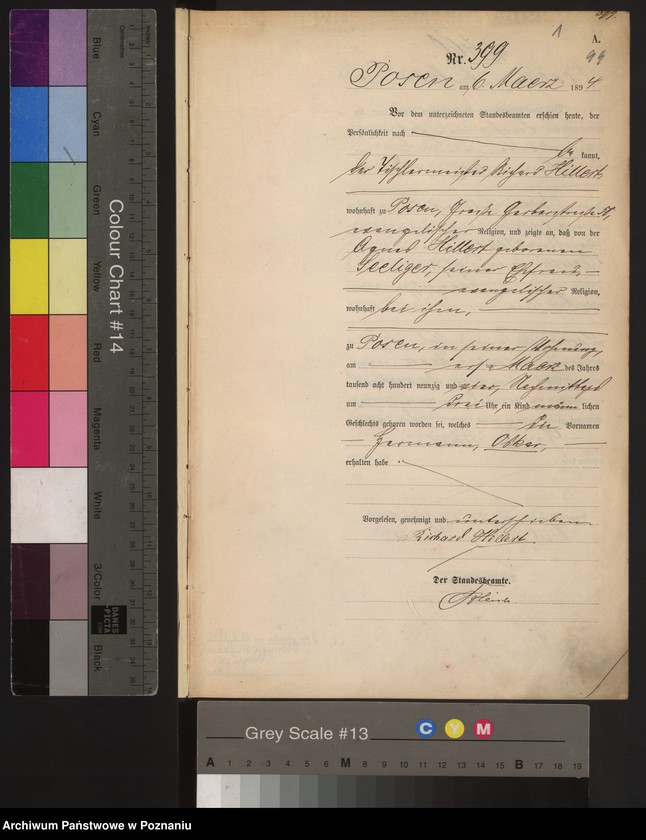 1
A.
99
Nr. 399
Posen am 6. Maerz 1894.
Vor dem unterzeichneten Standesbeamten erschien heute, der
Persönlichkeit nach
be kannt,
der Tischlermeister Richard Hillert
wohnhaft zu Posen, Große Gerberstraße
evangelischer Religion, und zeigte an, daß von der
Agnes Hillert geborenen
Seeliger, seiner Ehefrau,
evangelischer Religion,
wohnhaft bei ihm,
zu Posen, in seiner Wohnung,
am Maerz des Jahres
tausend acht hundert neunzig und vier, Nachmittags
um drei Uhr, ein Kind männ lichen
Geschlechts geboren worden sei, welches die Vornamen
Hermann, Oskar,
erhalten habe.
Vorgelesen, genehmigt und unterschrieben
Richard Hillert
Der Standesbeamte.
Colour Chart #14
Blue
Cyan
Green
Yellow
Red
Magenta
White
3/Color
Black
Centimetres
Inches
DANES
-PICTA
.COM
Grey Scale #13
C Y M
A 1 2 3 4 5 6 M 8 9 10 11 12 13 14 15 B 17 18 19
Archiwum Państwowe w Poznaniu